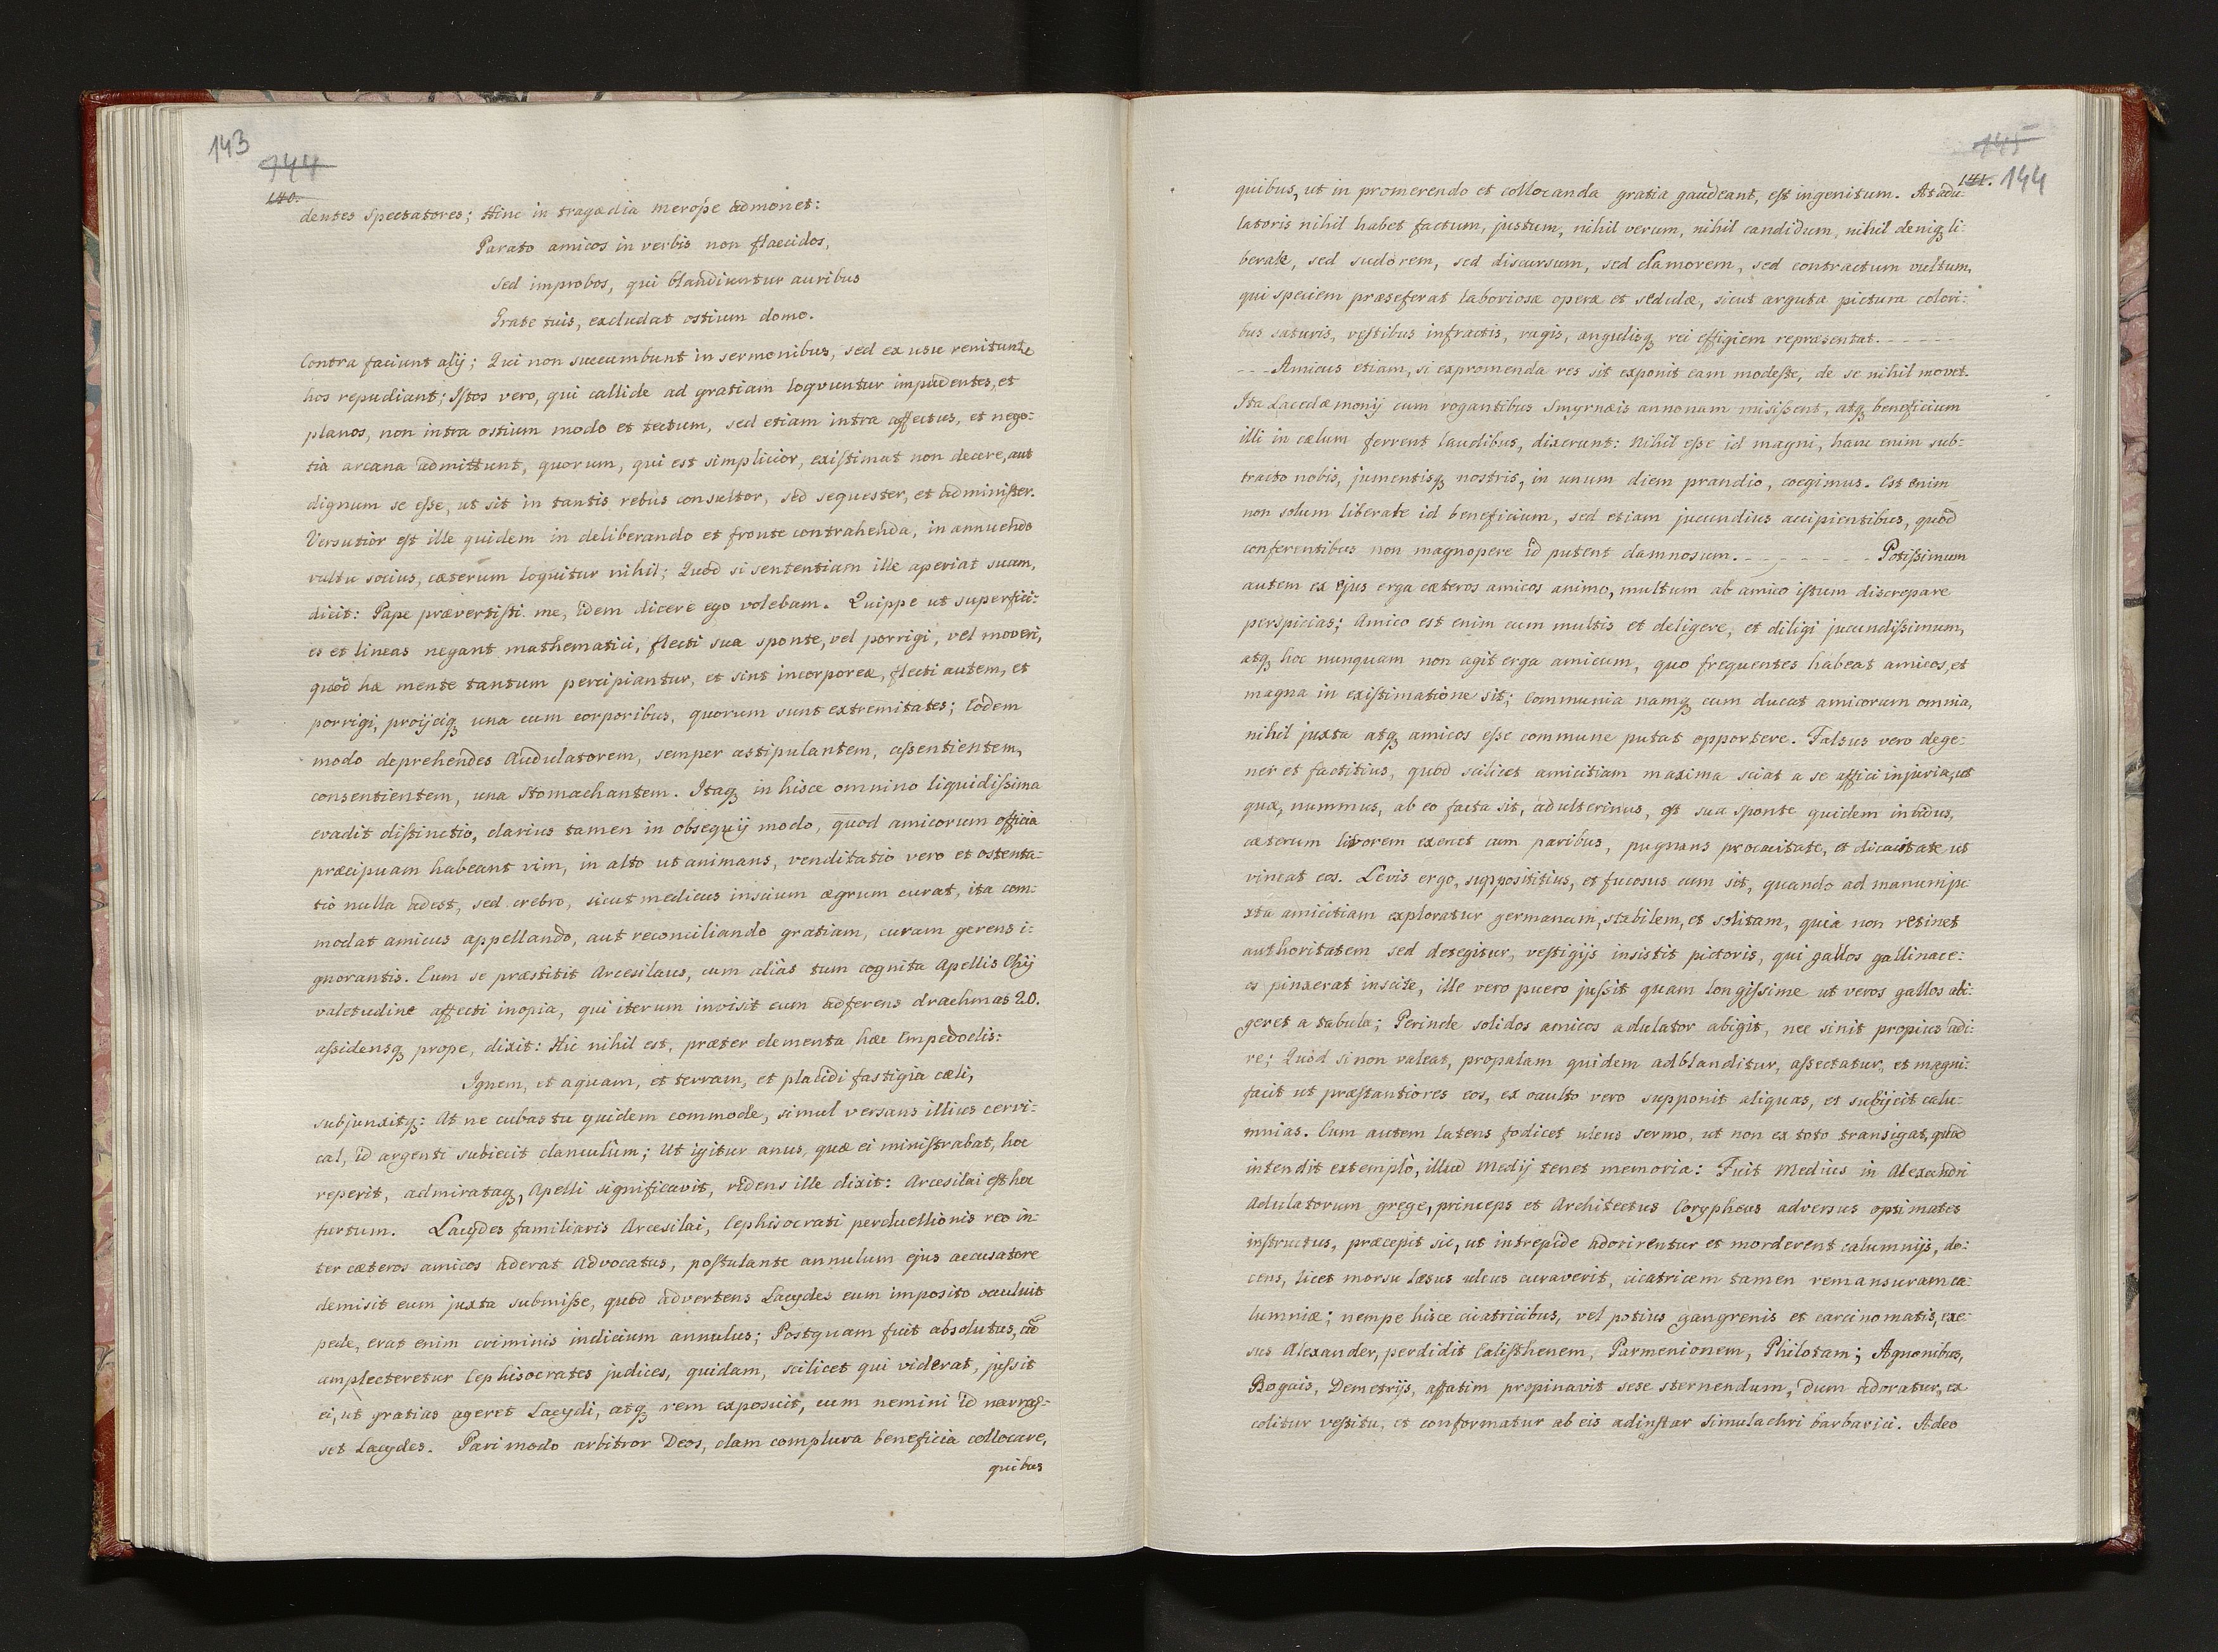 143
144
140.
dentes spectatores; Hinc in tragædia merope admonet:
Parato amicos in verbis non flaccidos,
sed improbos, qui blandiuntur auribus
Grate tuis, excludat ostium domo.
Contra faciunt alij; Qui non succumbunt in sermonibus, sed ex usu renitunte
hos repudiant; Istos vero, qui callide ad gratiam loqvuntur impudentes, et
planos, non intra ostium modo et tectum, sed etiam intra affectus, et nego-
tia arcana admittunt, quorum, qui est simplicior, existimat non decere, aut
dignum se esse, ut sit in tantis rebus consultor, sed sequester, et administer.
Versutior est ille quidem in deliberando et fronte contrahenda, in annuendo
vultu socius, cæterum loquitur nihil; Quod si sententiam ille aperiat suam,
dicit: Pape prævertisti me, idem dicere ego volebam. Quippe ut superfici-
es et lineas negant mathematici, flecti sua sponte, vel porrigi, vel moveri,
quod hæ mente tantum percipiantur, et sint incorporeæ, flecti autem, et
porrigi, proijciq una cum corporibus, quorum sunt extremitates; Eodem
modo deprehendes Audulatorem, semper astipulantem, assentientem,
consentientem, una stomachantem. Itaq in hisce omnino liquidissima
evadit distinctio, clarius tamen in obsequij modo, quod amicorum officia
præcipuam habeant vim, in alto ut animans, venditatio vero et ostenta-
tio nulla adest, sed crebro, sicut medicus inscium ægrum curat, ita com-
modat amicus appellando, aut reconciliando gratiam, curam gerens i-
gnorantis. Eum se præstitit Arcesilaus, cum alias tum cognita Apellis Chij
valetudine affecti inopia, qui iterum invisit eum adferens drachmas 20.
assidensq prope, dixit: Hic nihil est, præter elementa hæc Empedoclis:
Ignem, et aquam, et terram, et placidi fastigia cæli,
subjunxitq: At ne cubas tu quidem commode, simul versans illius cervi-
cal, id argenti subiecit clanculum; Ut igitur anus, quæ ei ministrabat, hoc
reperit, admirataq, Apelli significavit, ridens ille dixit: Arcesilai est hoc
furtum. Lacydes familiaris Arcesilai, Cephisocrati perduellionis reo in-
ter cæteros amicos aderat Advocatus, postulante annulum ejus accusatore
demisit eum juxta submisse, quod advertens Lacydes eum imposito occuluit
pede, erat enim criminis indicium annulus; Postquam fuit absolutus, cū
amplecteretur Cephisocrates judices, quidam, scilicet qui viderat, jussit
ei, ut gratias ageret Lacydi, atq rem exposuit, cum nemini id narras-
set Lacydes. Pari modo arbitror Deos, clam complura beneficia collocare,
quibus
145
141. 144
quibus, ut in promerendo et collocanda gratia gaudeant, est ingenitum. At adu-
latoris nihil habet factum, justum, nihil verum, nihil candidum, nihil deniq li-
berale, sed sudorem, sed discursum, sed clamorem, sed contractum vultum,
qui speciem præseferat laboriosæ operæ et sedulæ, sicut arguta pictura colori-
bus saturis, vestibus infractis, rugis, angulisq rei effigiem repræsentat. - - - - -
- - - Amicus etiam, si expromenda res sit exponit eam modeste, de se nihil movet.
Ita Lacedæmonij cum rogantibus Smyrnæis annonam misissent, atq beneficium
illi in cælum ferrent laudibus, dixerunt: Nihil esse id magni, hanc enim sub-
tracto nobis, jumentisq nostris, in unum diem prandio, coegimus. Est enim
non solum liberale id beneficium, sed etiam jucundius accipientibus, quod
conferentibus non magnopere id putent damnosum. - - - - - - - Potissimum
autem ex ejus erga cæteros amicos animo, multum ab amico istum discrepare
perspicias; Amico est enim cum multis et deligere, et diligi jucundissimum,
atq hoc nunquam non agit erga amicum, quo frequentes habeat amicos, et
magna in existimatione sit; Communia namq cum ducat amicorum omnia,
nihil juxta atq amicos esse commune putat opportere. Falsus vero dege-
ner et factitius, quod scilicet amicitiam maxima sciat a se affici injuria, ut
quæ, nummus, ab eo facta sit, adulterinus, est sua sponte quidem invidus,
cæterum livorem exercet cum paribus, pugnans procacitate, et dicacitate ut
vincat eos. Levis ergo, supposititius, et fucosus cum sit, quando ad manum ju-
xta amicitiam exploratur germanam, stabilem, et solitam, quia non retinet
authoritatem sed detegitur, vestigijs insistit pictoris, qui gallos gallinace-
os pinxerat inscite, ille vero puero jussit quam longissime ut veros gallos abi-
geret a tabula; Perinde solidos amicos adulator abigit, nec sinit propius adi-
re; Quod si non valeat, propalam quidem adblanditur, assectatur, et magni-
facit ut præstantiores eos, ex occulto vero supponit aliquas, et subijcit calu-
mnias. Cum autem latens fodicet ulcus sermo, ut non ex toto transigat, quod
intendit extemplò, illud Medij tenet memoria: Fuit Medius in Alexandri
Adulatorum grege, princeps et Architectus Corypheus adversus optimates
instructus, præcepit sic, ut intrepide adorirentur et morderent calumnijs, do-
cens, licet morsu læsus ulcus curaverit, cicatricem tamen remansuram ca-
lumniæ; nempe hisce cicatricibus, vel potius gangrenis et carcinomatis, exe-
sus Alexander, perdidit Calisthenem, Parmenionem, Philotam; Agnonibus,
Bogais, Demetrijs, affatim propinavit sese sternendum, dum adoratur, ex
colitur vestitu, et conformatur ab eis adinstar simulachri barbarici. Adeo